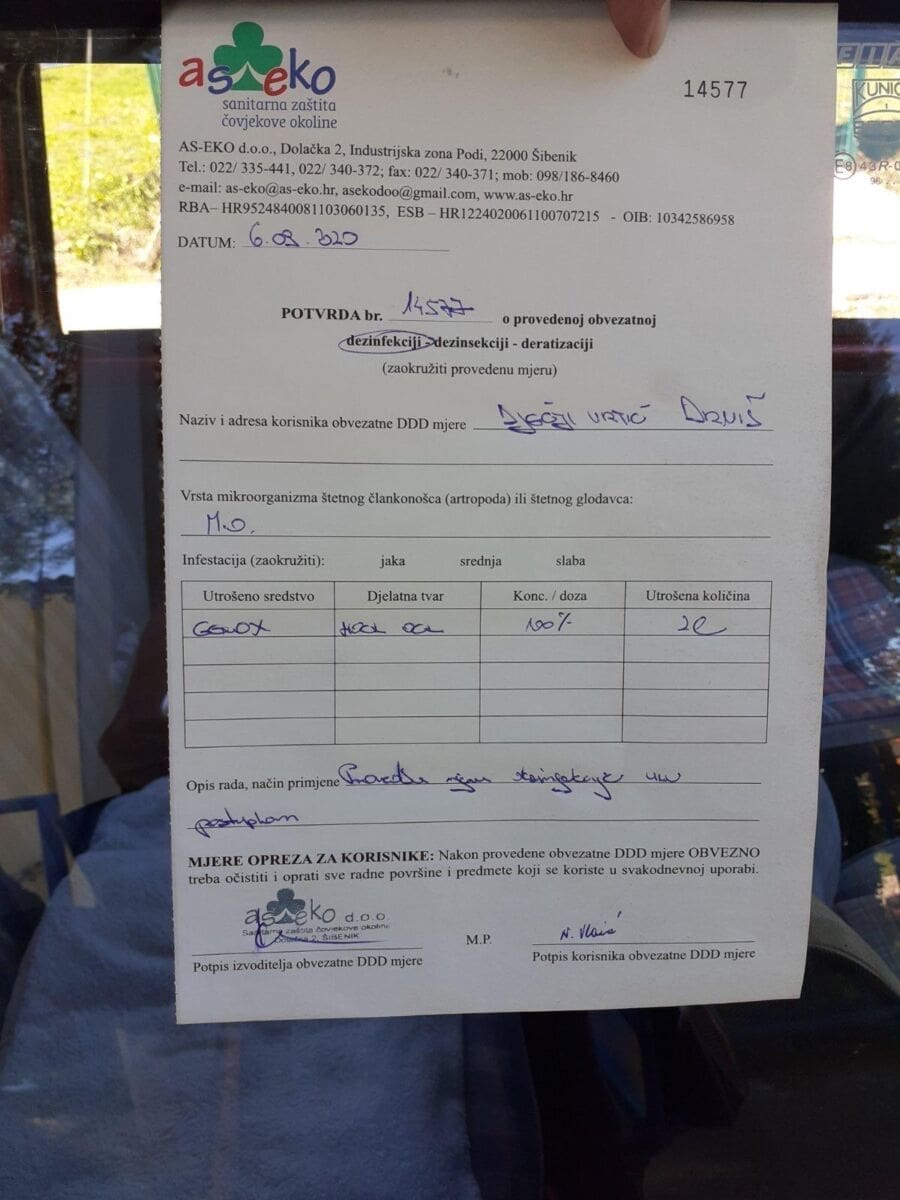 as eko
sanitarna zaštita
čovjekove okoline
14577
AS-EKO d.o.o., Dolačka 2, Industrijska zona Podi, 22000 Šibenik
Tel.: 022/ 335-441, 022/ 340-372; fax: 022/ 340-371; mob: 098/186-8460
e-mail: as-eko@as-eko.hr, asekodoo@gmail.com, www.as-eko.hr
RBA– HR9524840081103060135, ESB – HR1224020061100707215 - OIB: 10342586958
DATUM: 6.03.2020
POTVRDA br. 14577 o provedenoj obvezatnoj
dezinfekciji - dezinsekciji - deratizaciji
(zaokružiti provedenu mjeru)
Naziv i adresa korisnika obvezatne DDD mjere DJEČJI VRTIĆ DRNIŠ
Vrsta mikroorganizma štetnog člankonošca (artropoda) ili štetnog glodavca:
M.O.
Infestacija (zaokružiti): jaka srednja slaba
Utrošeno sredstvo Djelatna tvar Konc. / doza Utrošena količina
100% 2l
Opis rada, način primjene mjera
postupkom
MJERE OPREZA ZA KORISNIKE: Nakon provedene obvezatne DDD mjere OBVEZNO
treba očistiti i oprati sve radne površine i predmete koji se koriste u svakodnevnoj uporabi.
as eko d.o.o.
Sanitarna zaštita čovjekove okoline
Dolačka 2, ŠIBENIK
M.P.
Potpis izvoditelja obvezatne DDD mjere
Potpis korisnika obvezatne DDD mjere